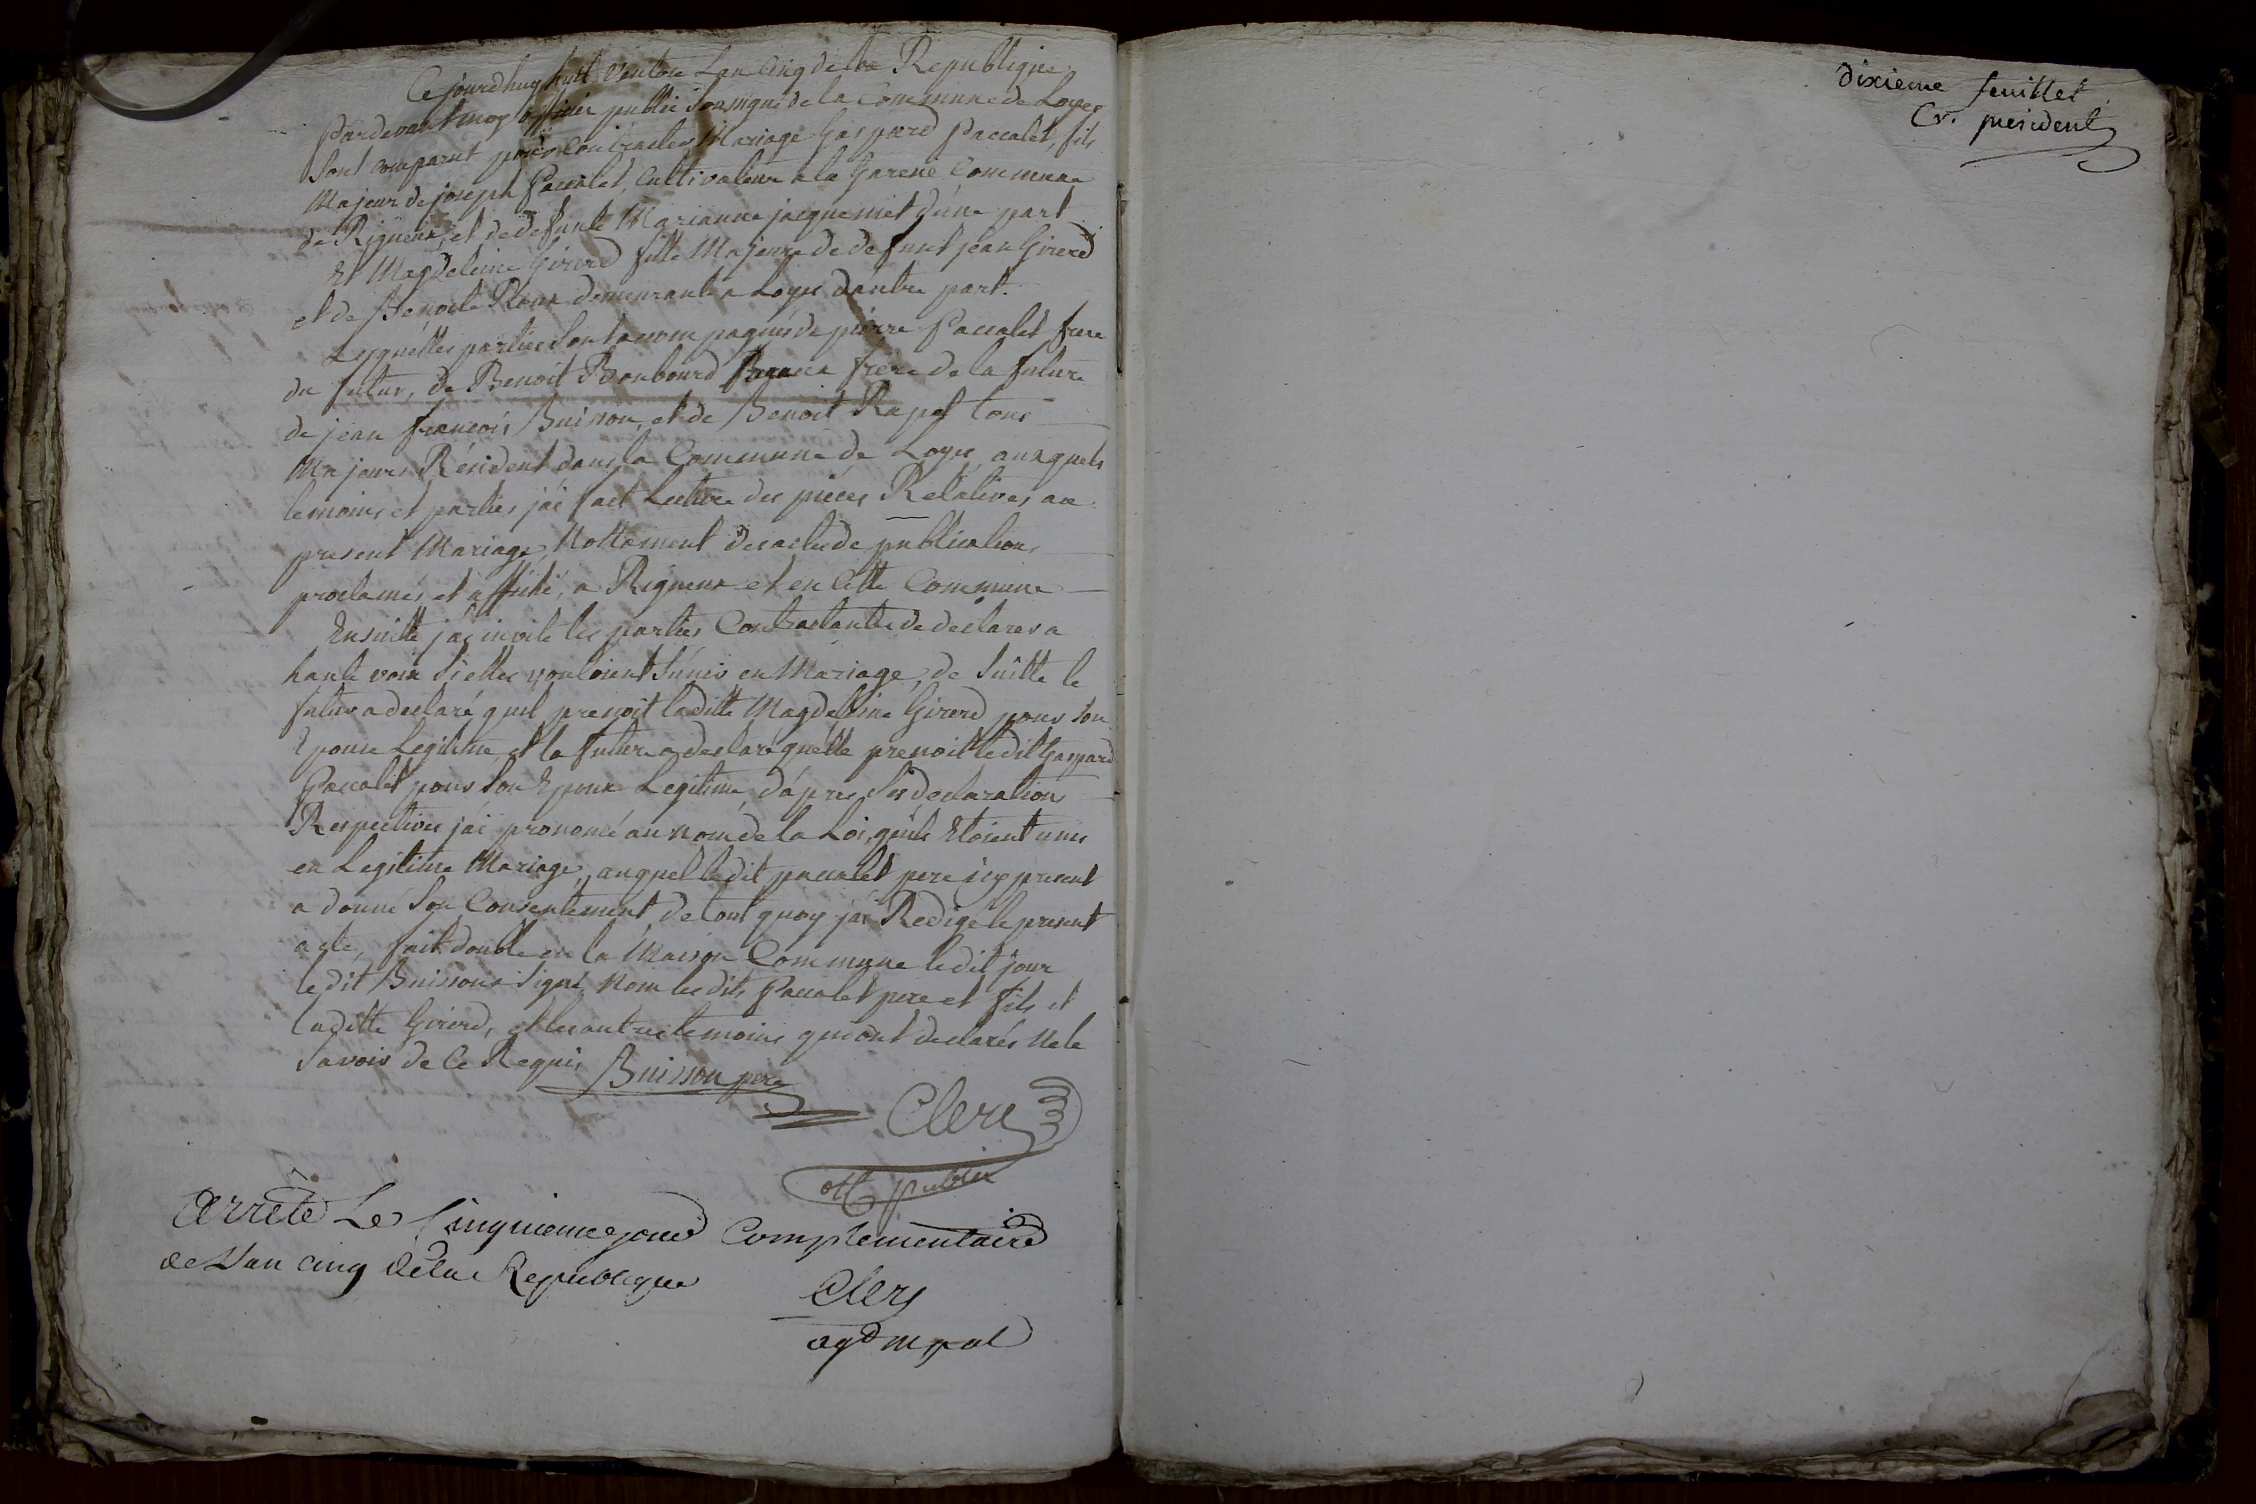 Ce jourdhuy huit Ventose Lan Cinq de la Republique
Pardevant moy officier public Soussigné de la Commune de Loyes
Sont comparut pour Contracter Mariage Gaspard Paccalet, fils
Majeur de joseph Paccalet, Cultivateur a la Garene Commune
de Rigneux, et de defunte Marianne jacquemet d'une part
Et Magdeleine Girerd fille Majeure de defunt jean Girerd
et de Benoite Roux demeurante a Loyes d'autre part.
Lesquelles parties sont acompagnés de pierre Paccalet frere
du futur, de Benoit Bonbourd frere de la future
de jean françois Buisson, et de Benoit Rapet tous
Majeurs Résident dans la Commune de Loyes, auxquels
temoins et parties j'ai fait Lecture des piéces Relatives au
present Mariage, Nottament des actes de publications
proclamés et affiché, a Rigneux et en Cette Commune
Ensuitte j'ai invité les parties Contractantes de declarer a
haute voix Si elles vouloient S'unir en Mariage, de Suitte le
futur a declaré quil prenoit laditte Magdeleine Girerd pour Son
Epouse Legitime, et la future a declaré quelle prenoit ledit Gaspard
Paccalet pour Son Epoux Legitime, d'apres Ses declarations
Respectives j'ai prononcé au nom de la Loi, quils Etoient unis
en Legitime Mariage, auquel ledit paccalet pere icy present
a donné Son Consentement, de tout quoy j'ai Redigé le present
acte, fait double en la Maison Commune ledit jour
ledit Buisson a Signé Non lesdits Paccalet pere et fils et
laditte Girerd, et les autres temoins qui ont declarés Ne le
Savoir de Ce Requis
Buisson pere
Clerc
off public
Arrêté Le Cinquieme jour Complementaire
de Lan cinq de la Republique
Clerc
agt mpal
dixieme feuillet
Cr. president